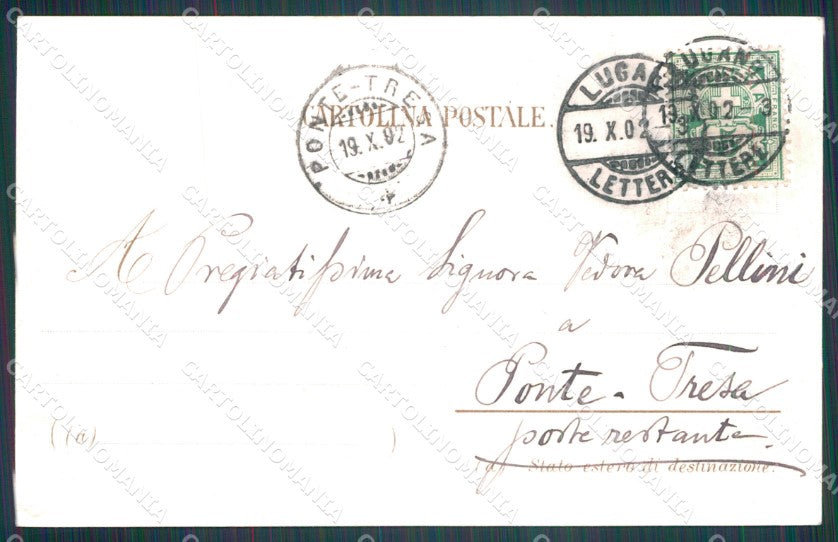 CARTOLINA POSTALE.
PONTE-TRESA
19.X.02
LUGANO
19.X.02
LETTERE
LUGANO
19.X.02
LETTERE
A Pregiatissima Signora Vedova Pellini
a
Ponte-Tresa
poste restante.
(a)
(a) Stato estero di destinazione.
CARTOLINOMANIA